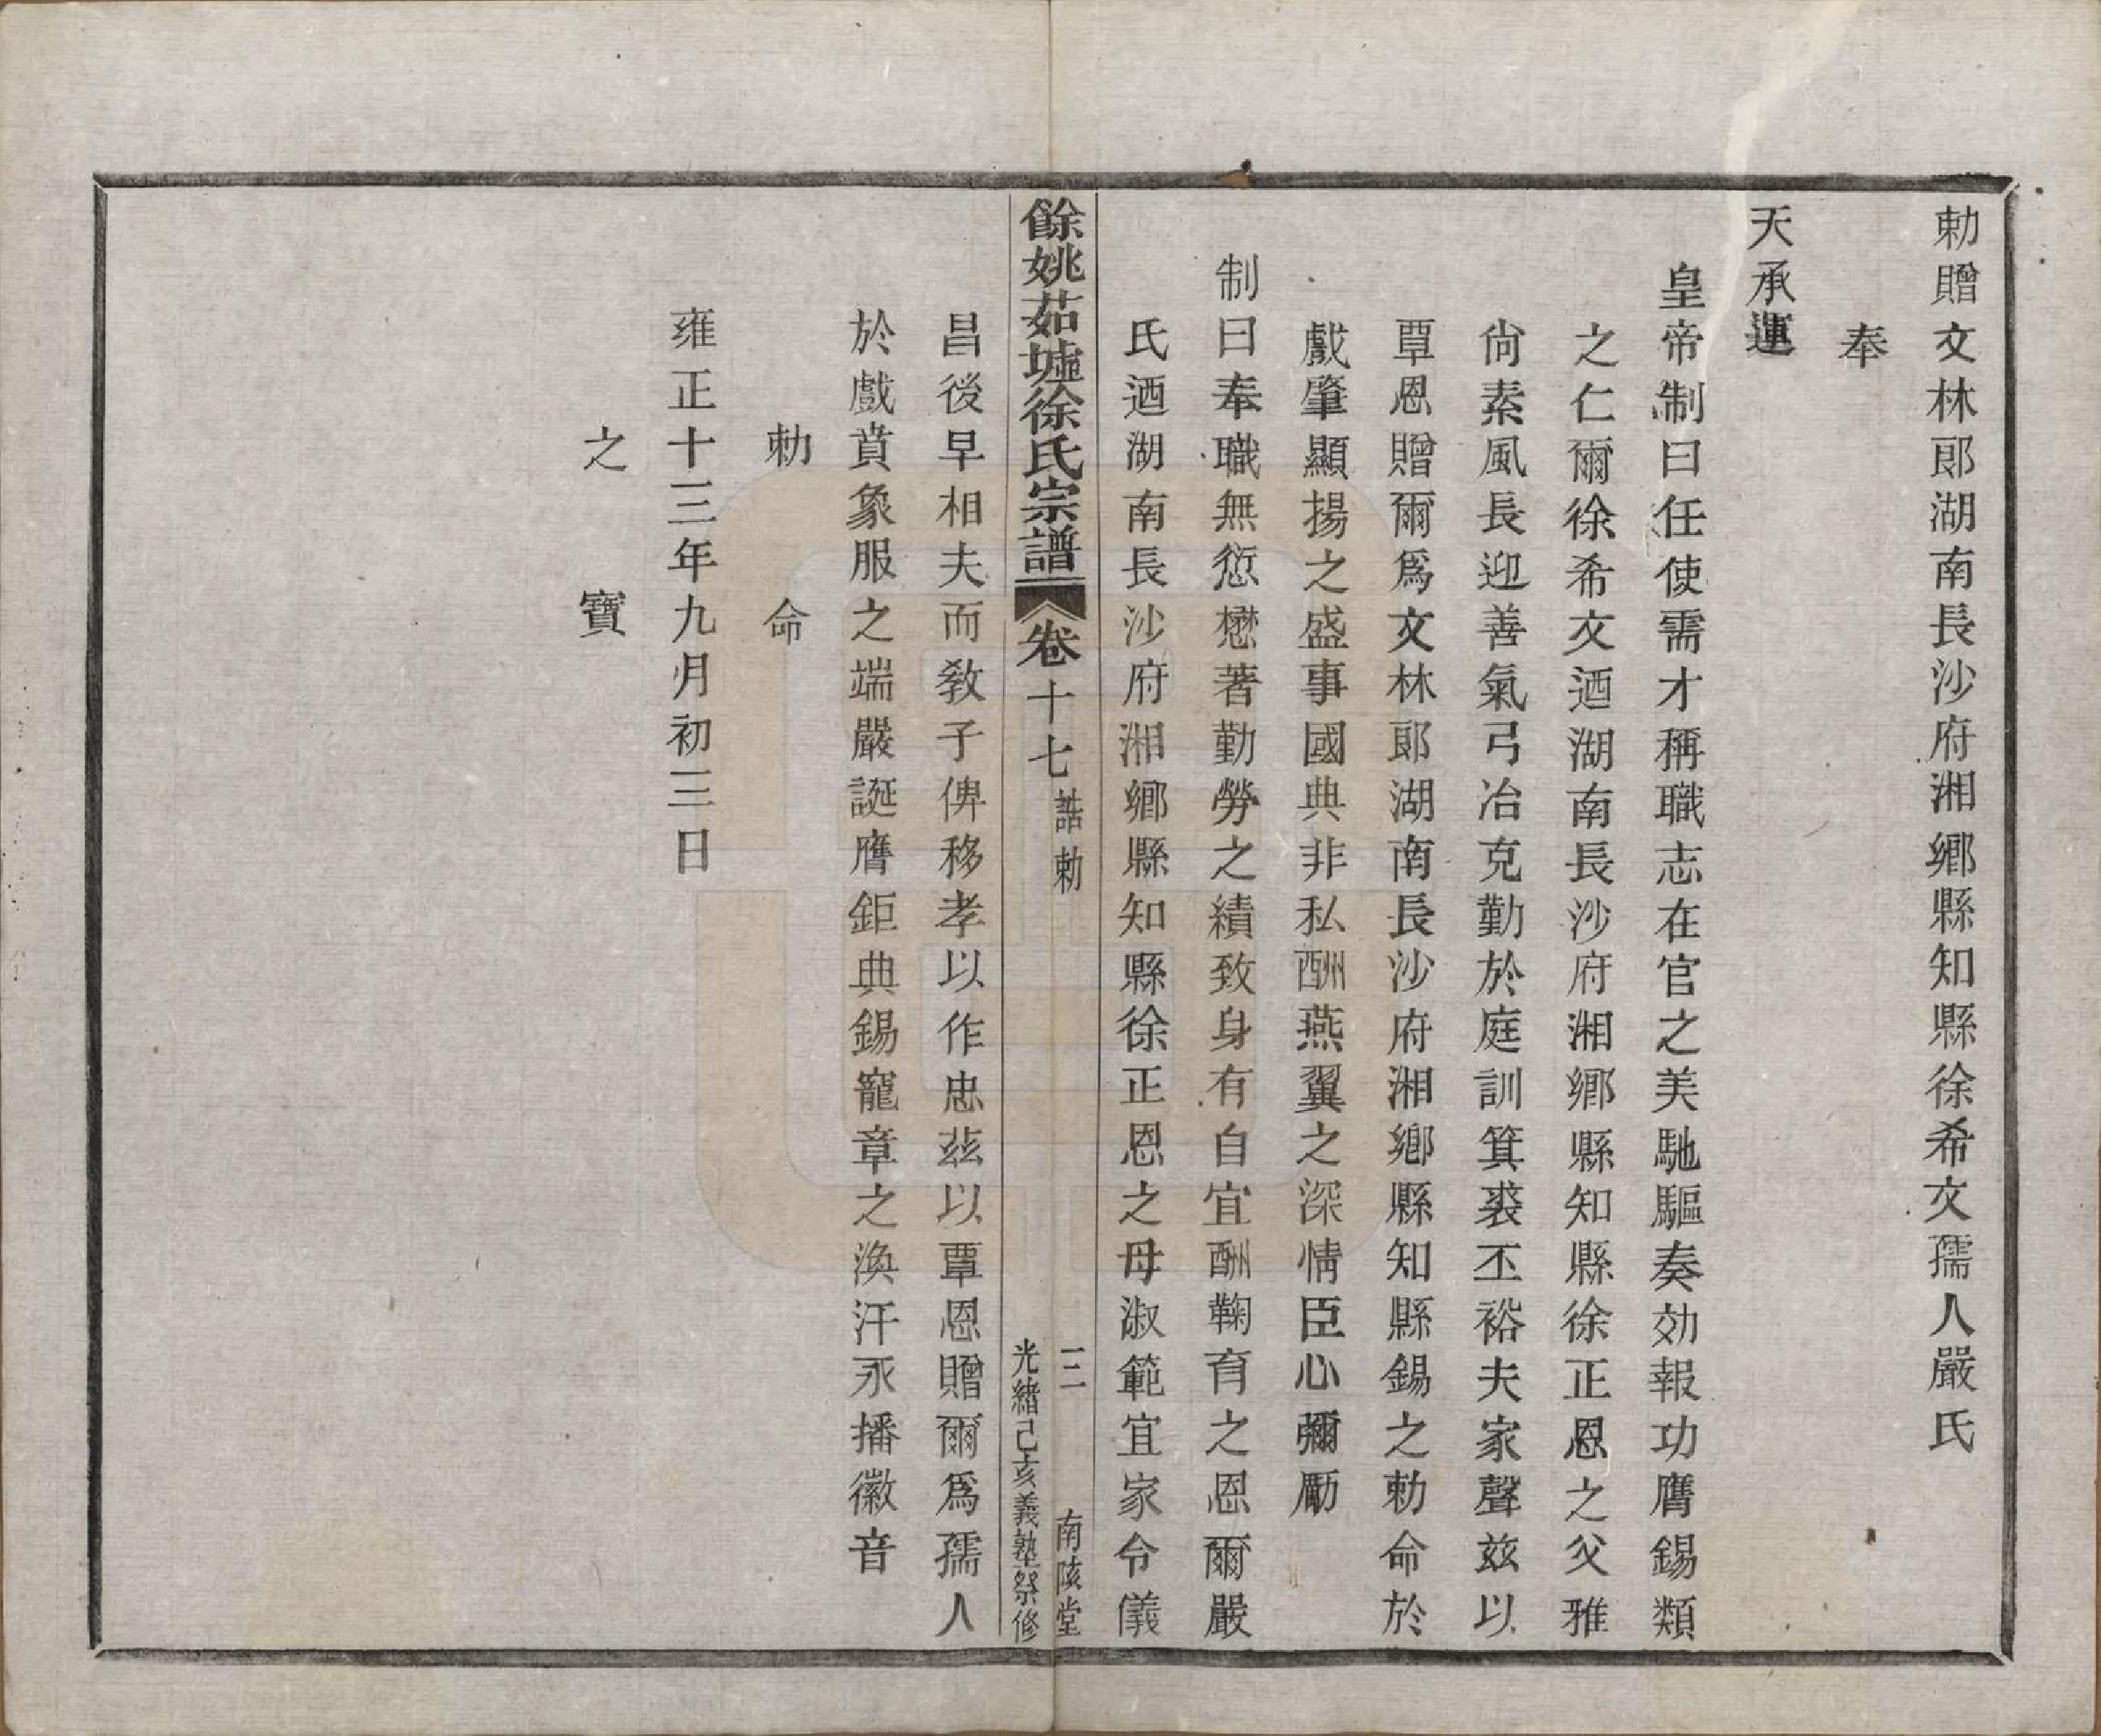 勅贈文林郎湖南長沙府湘鄉縣知縣徐希文孺人嚴氏
奉
天承運
皇帝制曰任使需才稱職志在官之美馳驅奏効報功膺錫類
之仁爾徐希文迺湖南長沙府湘鄉縣知縣徐正恩之父雅
尙素風長迎善氣弓冶克勤於庭訓箕裘丕裕夫家聲玆以
覃恩贈爾爲文林郎湖南長沙府湘鄉縣知縣錫之勅命於
戲肇顯揚之盛事國典非私酬燕翼之深情臣心彌勵
制曰奉職無愆懋著勤勞之績致身有自宜酬鞠育之恩爾嚴
氏迺湖南長沙府湘鄉縣知縣徐正恩之母淑範宜家令儀
餘姚茹墟徐氏宗譜 卷十七 誥勅 三 南陔堂
光緒己亥義塾祭修
昌後早相夫而敎子俾移孝以作忠玆以覃恩贈爾爲孺人
於戲賁象服之端嚴誕膺鉅典錫寵章之渙汗永播徽音
勅命
雍正十三年九月初三日
之寶